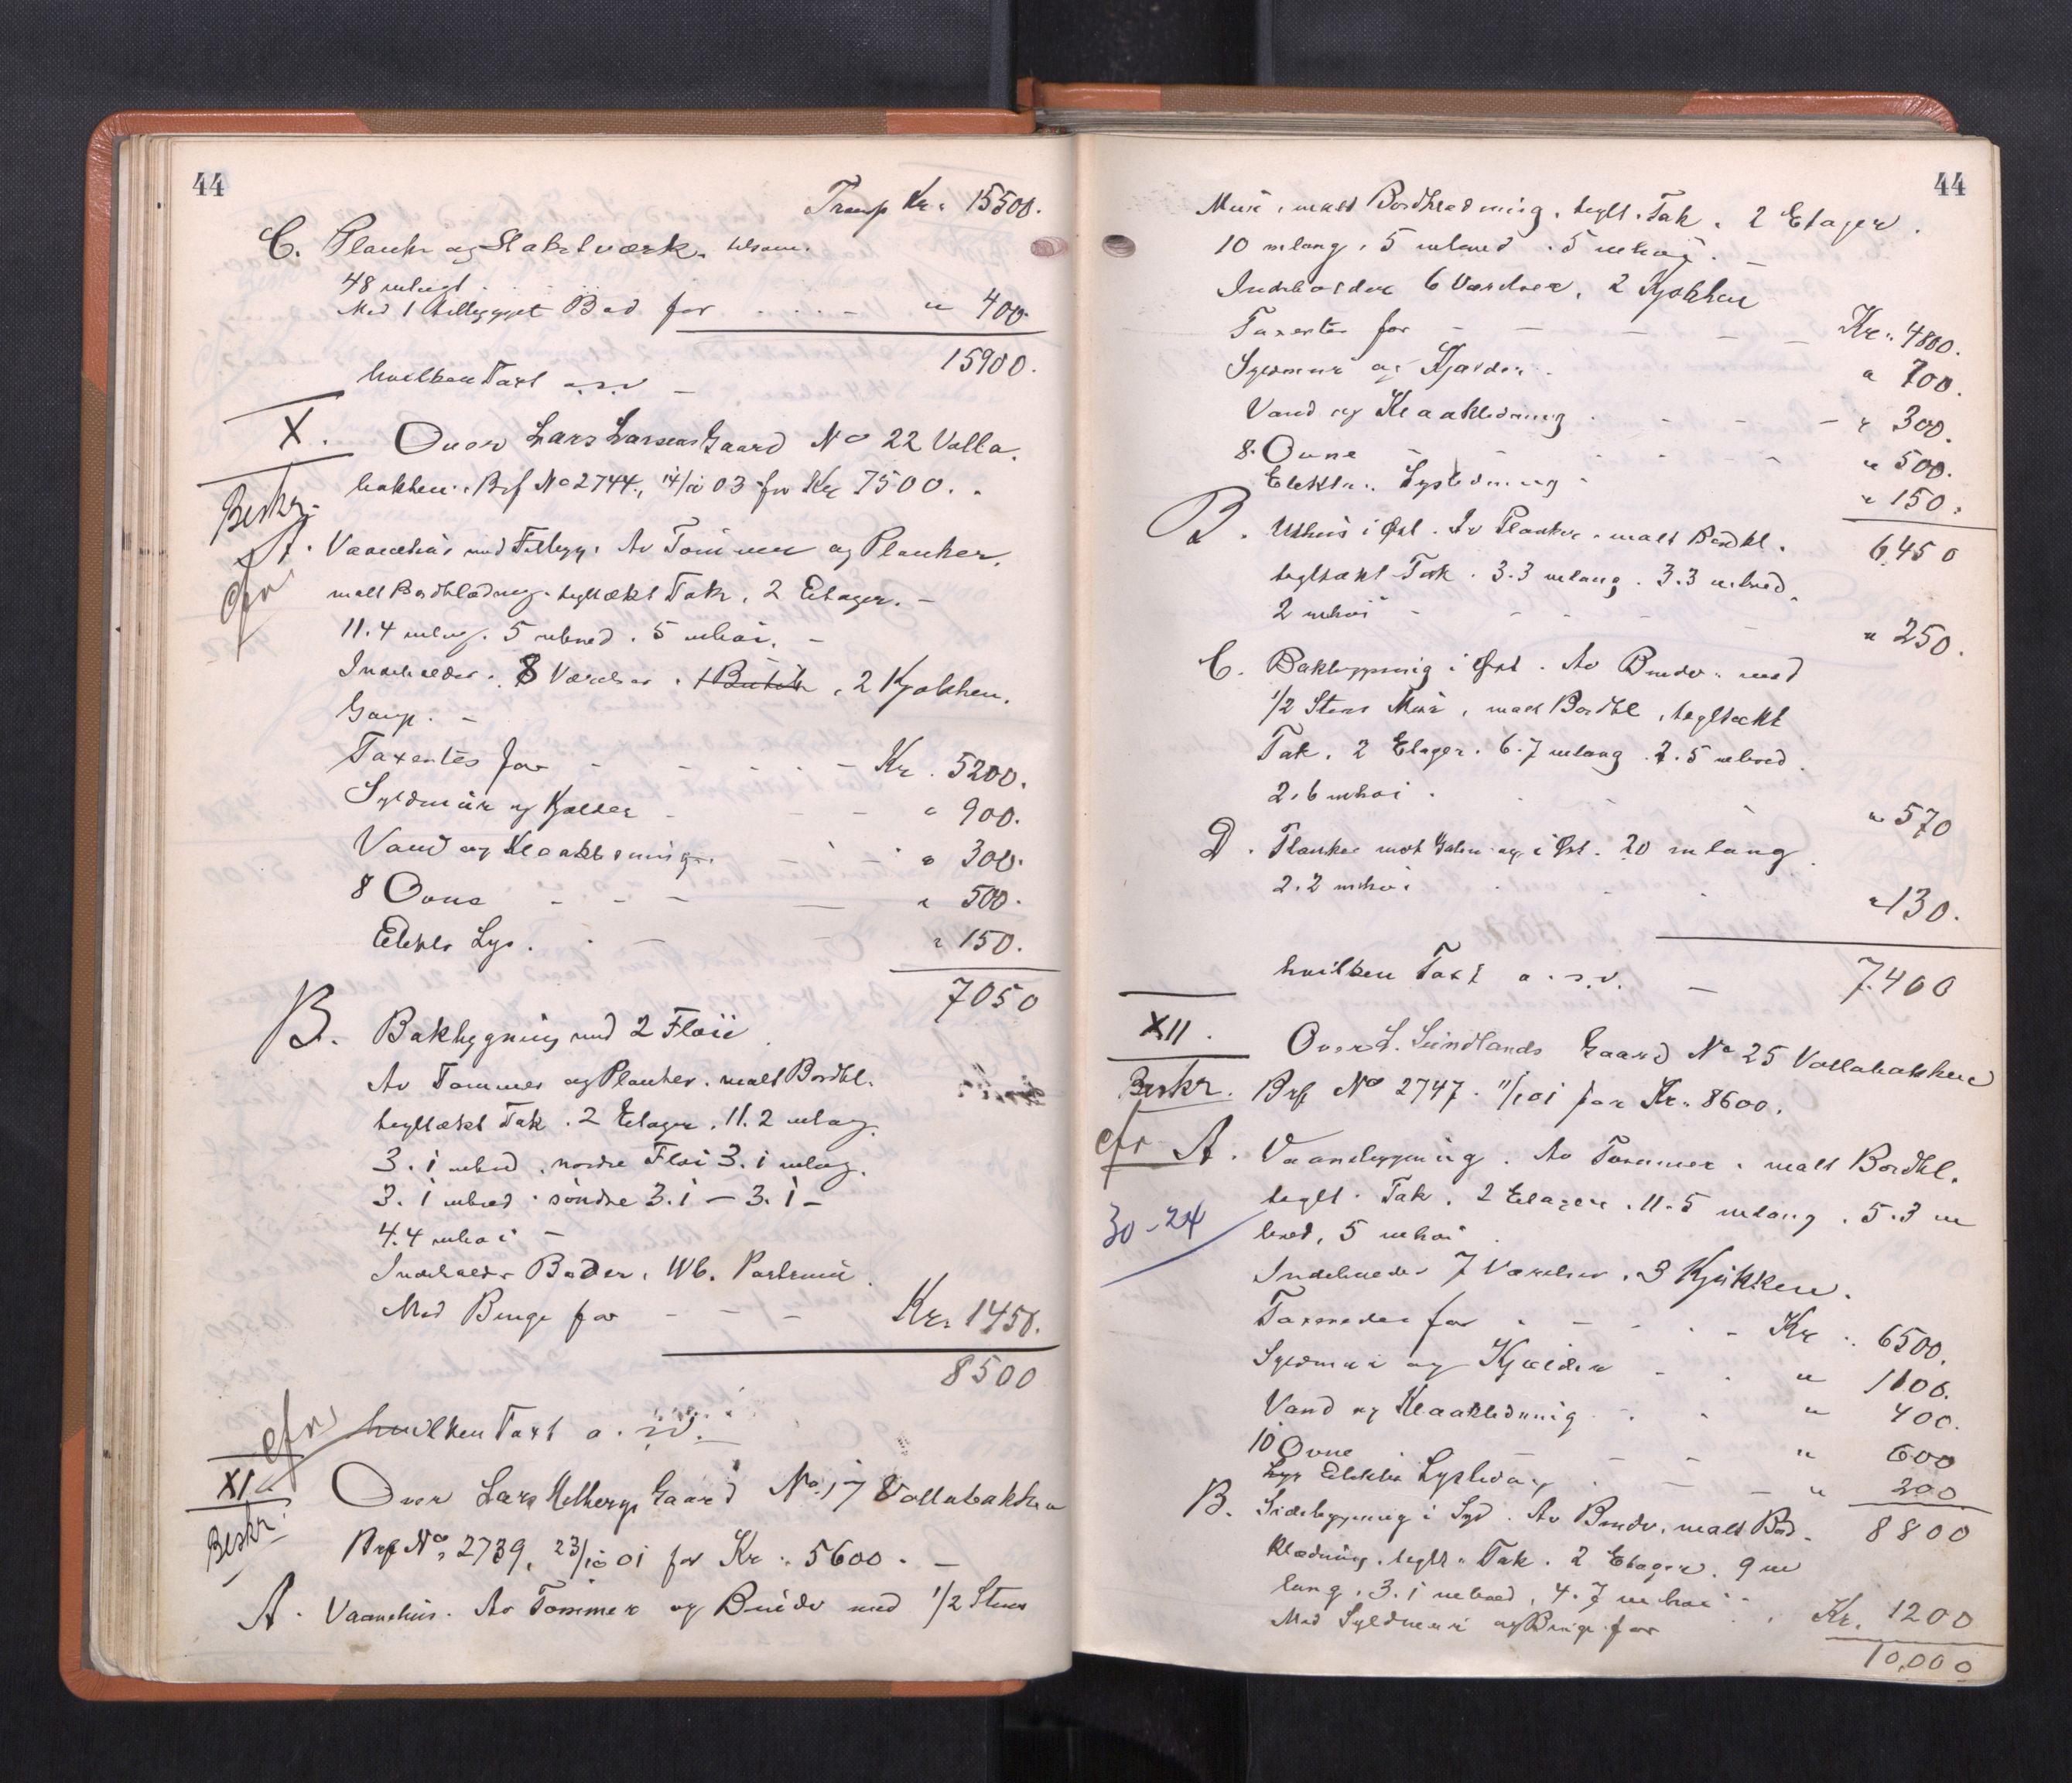 44
Transp Kr. 15500.
C. Planke og Stakitværk, tilsam.
48 m langt
Med 1 tilbygget Bod for " 400.
15900.
hvilken Taxt o.s.v.
X. Over Lars Larsens Gaard No 22 Valla-
bakken. Brf No 2744, 14/10 03 for Kr 7500.
Beskr.
A. Vaanehus med Tilbygg. Av Tømmer og Planker,
cfr
malt Bordklædning, tegltækt Tak, 2 Etager.
11.4 m lang. 5 m bred. 5 m høi.
Indeholder. 8 Værelser. 2 Kjøkken.
Gang.
Taxertes for Kr. 5200.
Syldmur og Kjælder " 900.
Vand og Kloakledning " 300.
8 Ovne " 500.
Elektr Lys. " 150.
7050
B. Bakbygning med 2 Fløie
Av Tømmer og Planker. malt Bordkl.
tegltækt Tak. 2 Etager. 11.2 m lang.
3.1 m bred. nordre Fløi 3.1 m lang.
3.1 m bred. søndre 3.1 — 3.1 —
4.4 m høi —
Indeholder Boder, Wc. Portrum.
Med Binge for Kr. 1450.
8500
cfr
hvilken Taxt o.s.v.
XI. Over Lars Melbergs Gaard No. 17 Vallabakken
Beskr.
Brf No. 2739, 23/10 01 for Kr. 5600. —
A. Vaanehus. Av Tømmer og Bindv med 1/2 Stens
44
Mur, malt Bordklædning, teglt. Tak. 2 Etager.
10 m lang, 5 m bred. 5 m høi.
Indeholder 6 Værelser, 2 Kjøkken
Taxertes for Kr. 4800.
Syldmur og Kjælder. " 700.
Vand og Kloakledning " 300.
8 Ovne " 500.
Elektr. Lysledning " 150.
6450
B. Uthus i Øst. Av Planker. malt Bordkl.
tegltækt Tak. 3.3 m lang. 3.3 m bred.
2 m høi " 250.
C. Bakbygning i Øst. Av Bindv. med
1/2 Stens Mur, malt Bordkl, tegltækt
Tak. 2 Etager. 6.7 m lang. 2.5 m bred.
2.6 m høi. " 570
D. Planke mot Gaten og i Øst. 20 m lang
2.2 m høi " 130.
hvilken Taxt o.s.v. — 7.400
XII. Over L. Sundlands Gaard No 25 Vallabakken
Beskr. Brf No 2747. 11/1 01 for Kr. 8600.
cfr A. Vaanebygning. Av Tømmer. malt Bordkl.
30-24
teglt. Tak. 2 Etager. 11.5 m lang. 5.3 m
bred, 5 m høi
Indeholder 7 Værelser. 3 Kjøkken.
Taxeredes for Kr. 6500.
Syldmur og Kjælder " 1100.
Vand og Kloakledning " 400.
10 Ovne " 600
Elektr Lysledn " 200
8800
B. Sidebygning i Syd. Av Bindv. malt Bord-
klædning, teglt. Tak. 2 Etager. 9 m
lang, 3.1 m bred, 4.7 m høi
Med Syldmur og Binge for Kr. 1200
10,000